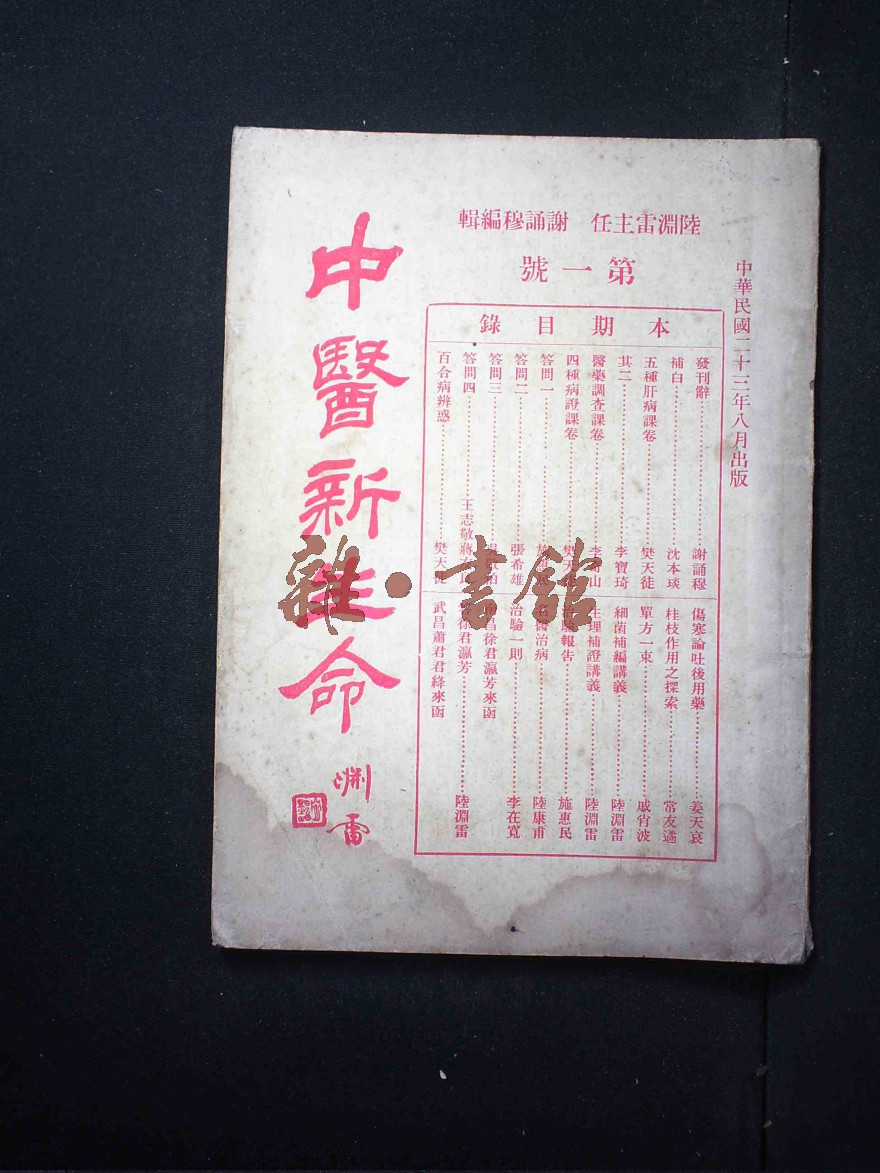 中華民國二十三年八月出版
陸淵雷主任 謝誦穆編輯
第一號
本期目錄
發刊辭 謝誦穆
補白 沈本琰
五種肝病課卷 樊天徒
其二 李寶琦
醫藥調查課卷 李 山
四種病證課卷 樊天徒
答問一
答問二 張希雄
答問三
答問四 王志敬
百合病辨惑 樊天徒
傷寒論吐後用藥 姜天哀
桂枝作用之探索 常友遹
單方一束 戚肖波
細菌補編講義 陸淵雷
生理補證講義 陸淵雷
治驗報告 施惠民
醫治病 陸康甫
治驗一則 李在寬
昌徐君瀛芳來函
徐君瀛芳 陸淵雷
武昌蕭君君絳來函
中醫新生命
淵雷
雜·書館